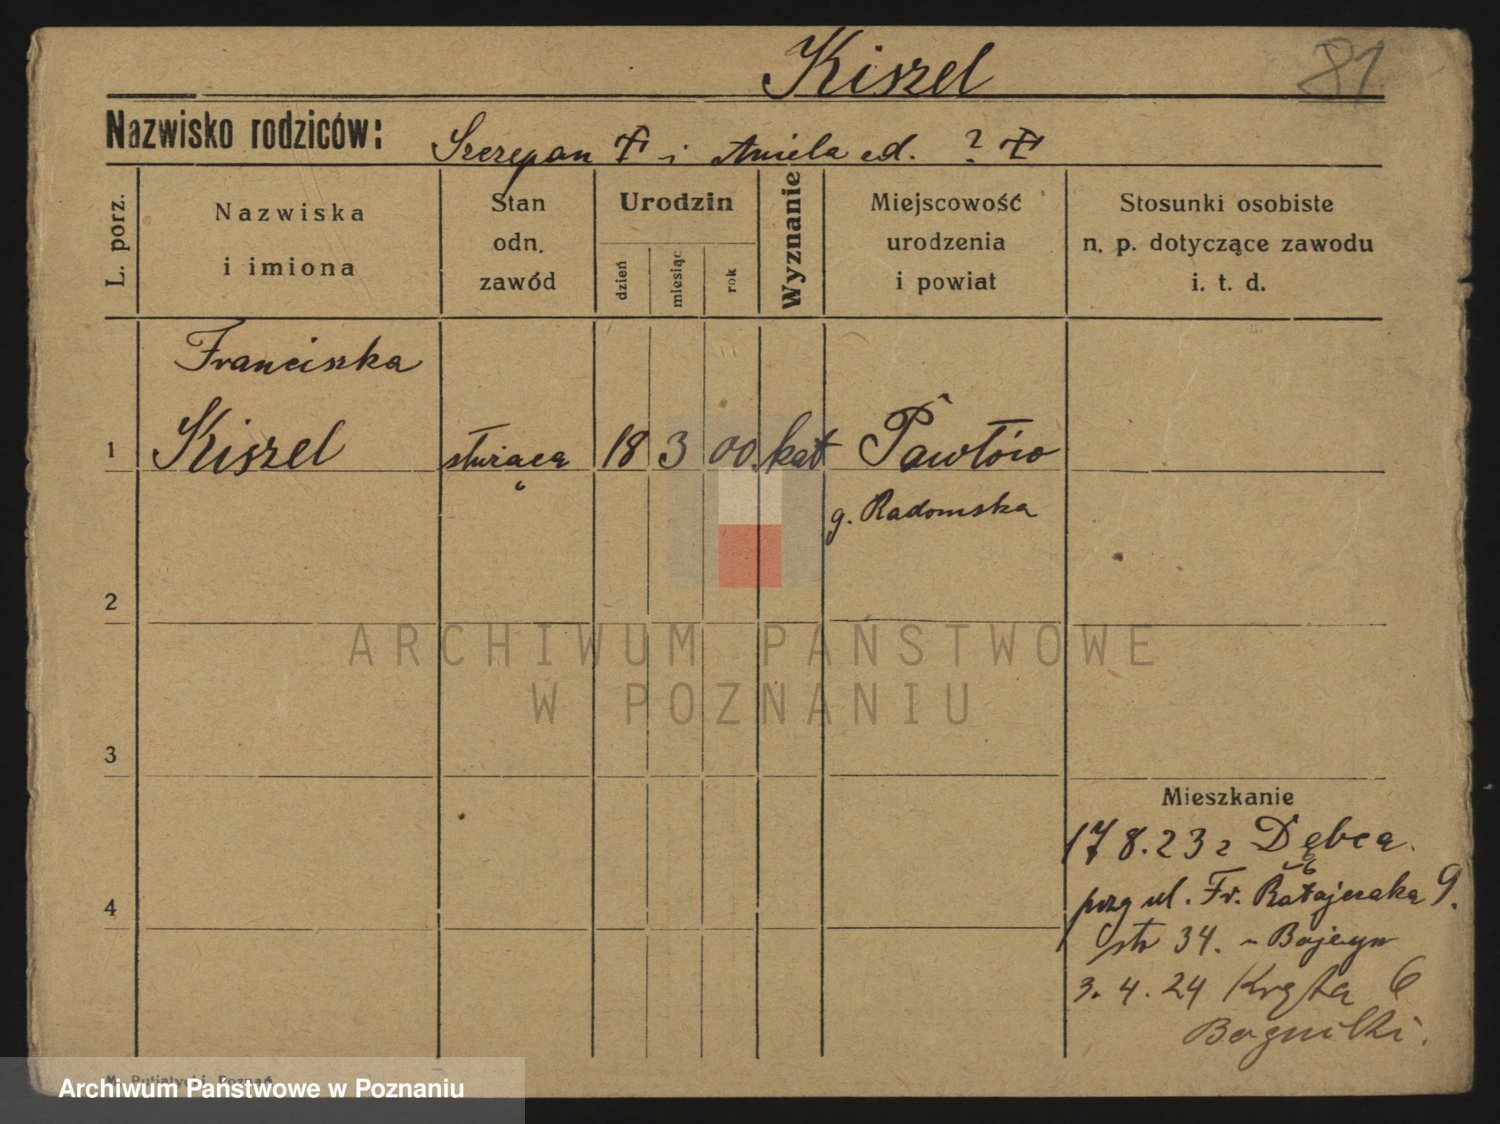 Kiszel 81
Nazwisko rodziców: Szczepan i Aniela ?
L. porz.
Nazwiska
i imiona
Stan
odn.
zawód
Urodzin
dzień
miesiąc
rok
Wyznanie
Miejscowość
urodzenia
i powiat
Stosunki osobiste
n. p. dotyczące zawodu
i. t. d.
Franciszka
1 Kiszel służąca 18 3 00 kat Pawłów
g. Radomska
2
3
4
Mieszkanie
17 8.23 z Dębca
ul. Fr. Ratajczaka 9.
34.
3.4.24 Kręta 6
ARCHIWUM PAŃSTWOWE
W POZNANIU
Archiwum Państwowe w Poznaniu